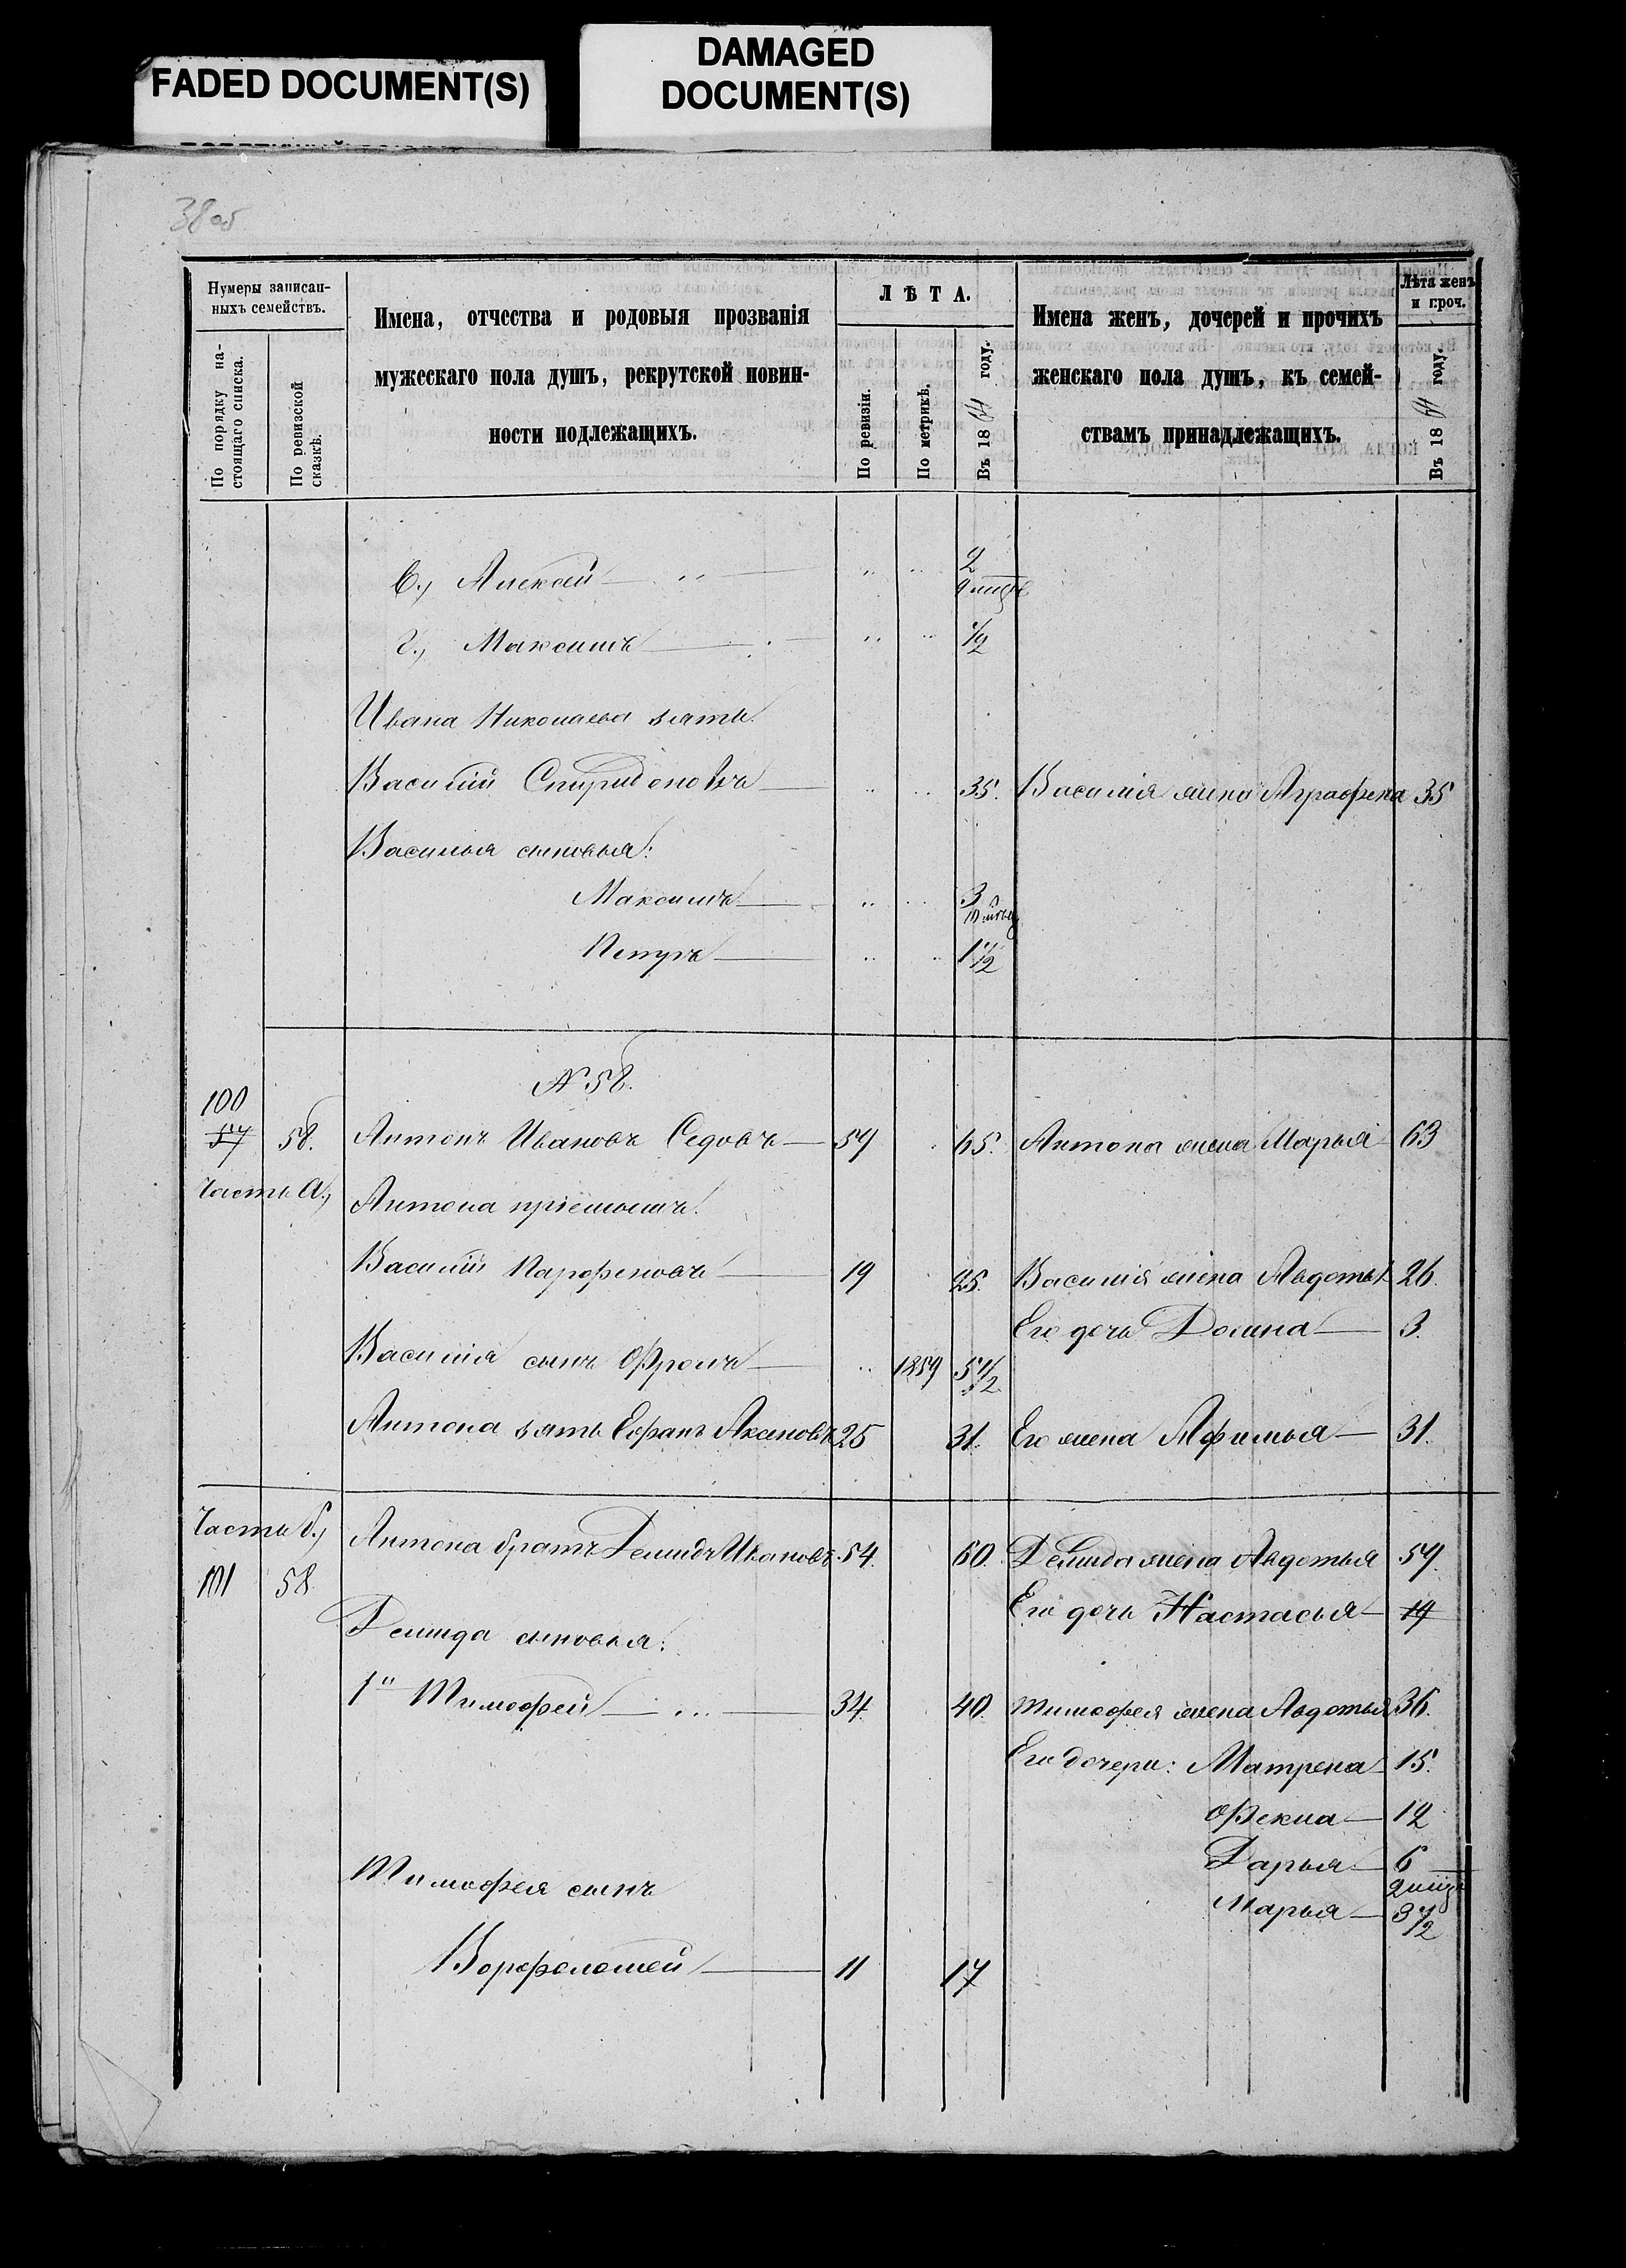 FADED DOCUMENT(S)
DAMAGED
DOCUMENT(S)
38об
Нумеры записан-
ныхъ семействъ.
По порядку на-
стоящаго списка.
По ревизской
сказкѣ.
Имена, отчества и родовыя прозванія
мужескаго пола душъ, рекрутской повин-
ности подлежащихъ.
ЛѢТА.
По ревизіи.
По метрикѣ.
Въ 1864 году.
Имена женъ, дочерей и прочихъ
женскаго пола душъ, къ семей-
ствамъ принадлежащихъ.
Лѣта женъ
и проч.
Въ 1864 году.
в., Алексей — 2
г., Максимъ — 1/2
Ивана Николаева зять
Василій Спиридоновъ — 35. Василія жена Аграфена 35
Василья сыновья:
Максимъ — 3
Петръ — 1 1/2
N 58.
100
57 58. Антонъ Ивановъ Седовъ — 59 65. Антона жена Марья 63
Часть а., Антона пріемышъ
Василій Парфеновъ — 19 25. Василія жена Авдотья 26.
Его дочь Домна — 3.
Василія сынъ Фролъ — 1859 5 1/2
Антона зять Ефимъ Аксеновъ 25 31. Его жена Афимья — 31.
Часть б., Антона братъ Демидъ Ивановъ 54. 60. Демида жена Авдотья 59.
101 58. Его дочь Настасья — 19
Демида сыновья:
1й Тимофей — 34 40. Тимофея жена Авдотья 36.
Его дочери: Матрена 15.
Фекла — 12
Дарья — 6
Тимофея сынъ
Марья — 3 1/2
Ворфоломей — 11 17